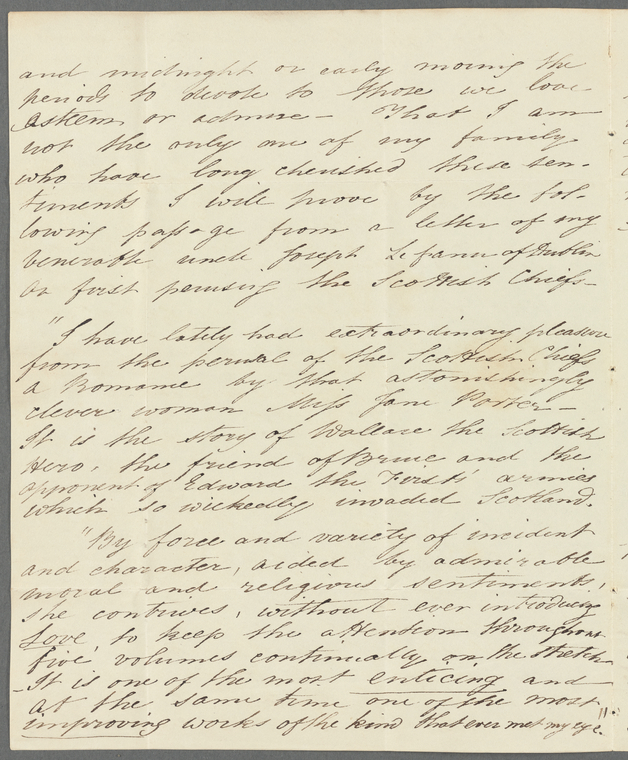 and midnight or early morning the
periods to devote to those we love
esteem, or admire – That I am
not the only one of my family
who have long cherished these sen-
timents I will prove by the fol-
lowing passage from a letter of my
venerable uncle Joseph Lefanu of Dublin
on first perusing the Scottish Chiefs –
"I have lately had extraordinary pleasure
from the perusal of the Scottish Chiefs
a Romance by that astonishingly
clever woman Miss Jane Porter –
It is the story of Wallace the Scottish
Hero, the friend of Bruce and the
opponent of Edward the First's armies
which so wickedly invaded Scotland.
"By force and variety of incident
and character, aided by admirable
moral and religious sentiments,
she contrives, without ever introducing
Love, to keep the attention throughout
five volumes continually on the stretch
– It is one of the most enticing and
at the same time one of the most
improving works of the kind that ever met my eye."